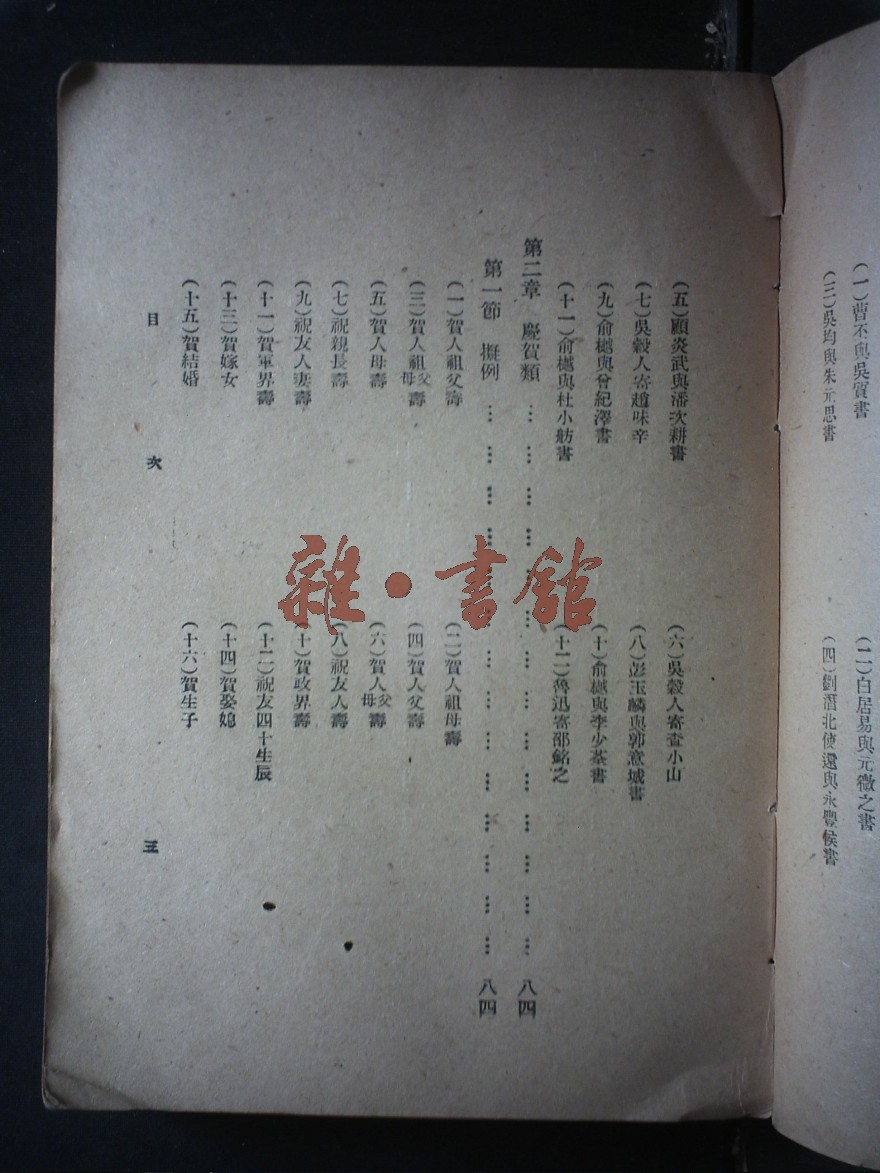 (一)曹丕與吳質書
(二)白居易與元微之書
(三)吳均與朱元思書
(四)劉潛北使還與永豐侯書
(五)顧炎武與潘次耕書
(六)吳穀人寄查小山
(七)吳穀人寄趙味辛
(八)彭玉麟與郭意城書
(九)俞樾與曾紀澤書
(十)俞樾與李少荃書
(十一)俞樾與杜小舫書
(十二)魯迅寄邵銘之
第二章 慶賀類 … … … … … … … … … … … … … … 八四
第一節 擬例 … … … … … … … … … … … … … … 八四
(一)賀人祖父壽
(二)賀人祖母壽
(三)賀人祖父母壽
(四)賀人父壽
(五)賀人母壽
(六)賀人父母壽
(七)祝親長壽
(八)祝友人壽
(九)祝友人妻壽
(十)賀政界壽
(十一)賀軍界壽
(十二)祝友四十生辰
(十三)賀嫁女
(十四)賀娶媳
(十五)賀結婚
(十六)賀生子
目 次 三
雜·書館